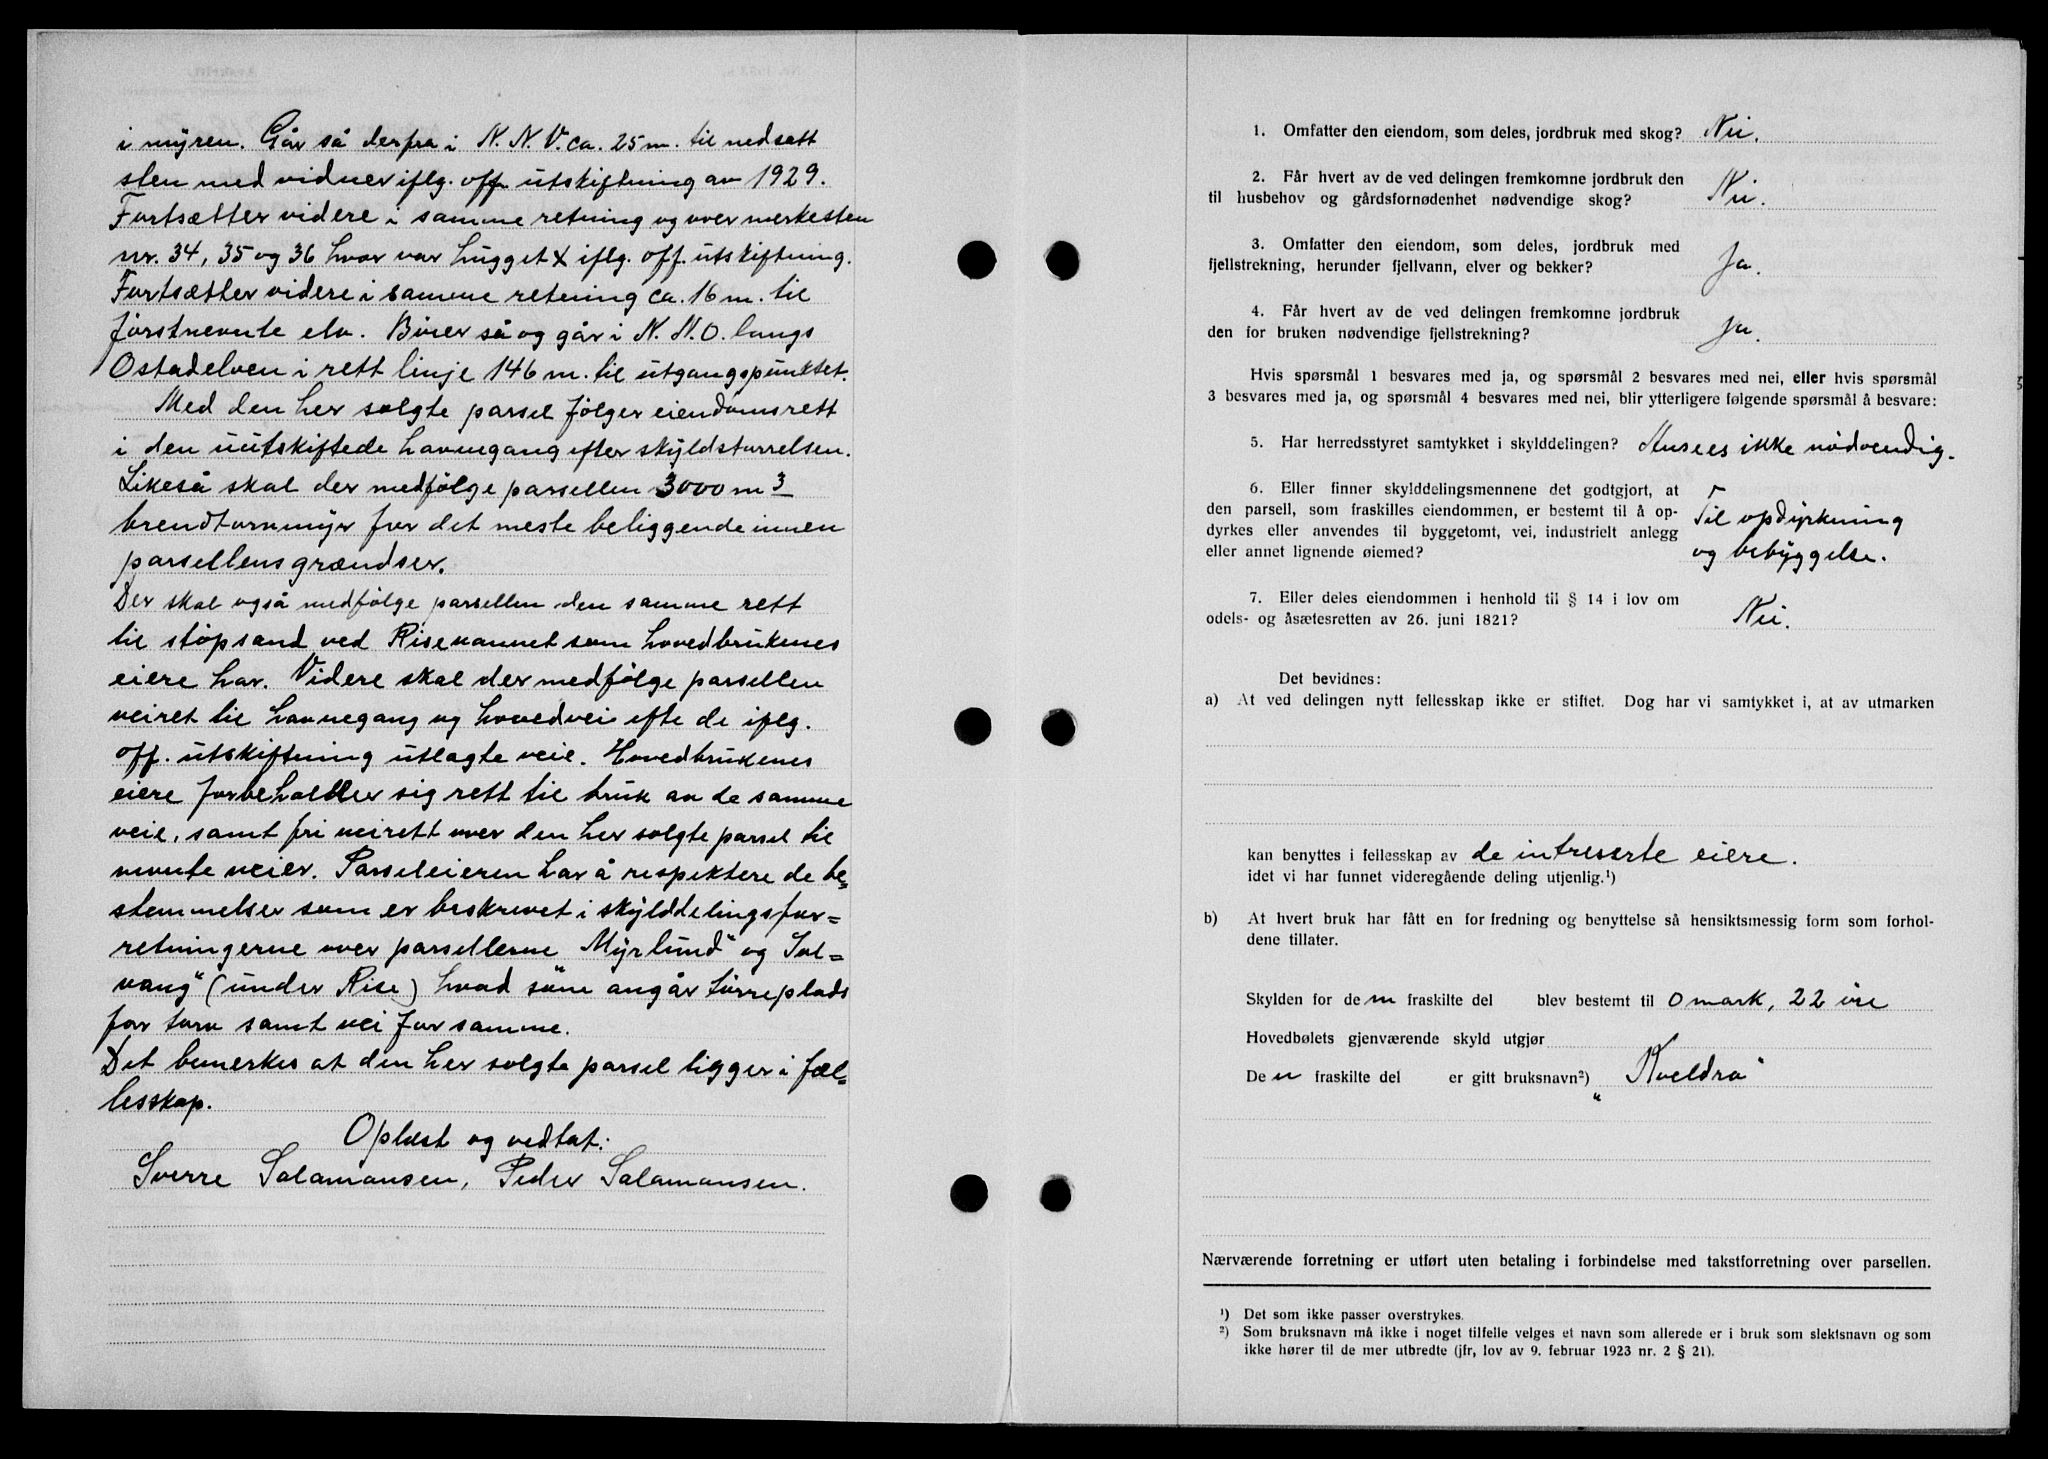 i myren. Går så derfra i N.N.V. ca. 25 m. til nedsatt
sten med vidner iflg. off. utskiftning av 1929.
Fortsætter videre i samme retning og over merkesten
nr. 34, 35 og 36 hvor var hugget X iflg. off. utskiftning.
Fortsætter videre i samme retning ca. 16 m. til
førstnevnte elv. Bøier så og går i N.N.O. langs
Ostadelven i rett linje 146 m. til utgangspunktet.
Med den her solgte parsel følger eiendomsrett
i den uutskiftede havnegang efter skyldstørrelsen.
Likeså skal der medfølge parsellen 3000 m3
brendtorvmyr for det meste beliggende innen
parsellens grændser.
Der skal også medfølge parsellen den samme rett
til støpsand ved Risevannet som hovedbrukenes
eiere har. Videre skal der medfølge parsellen
veiret til havnegang og hovedvei efte de iflg.
off. utskiftning utlagte veie. Hovedbrukenes
eiere forbeholder sig rett til bruk av de samme
veie, samt fri veirett over den her solgte parsel til
nevnte veier. Parseleieren har å respektere de be=
stemmelser som er beskrevet i skylddelingsfor=
retningerne over parsellerne "Myrlund" og "Sol=
vang" (under Rise) hvad som angår tørreplads
for torv samt vei for samme.
Det bemerkes at den her solgte parsel ligger i fæl=
lesskap.
Oplæst og vedtat:
Sverre Salamonsen, Peder Salamonsen.
1. Omfatter den eiendom, som deles, jordbruk med skog? Nei.
2. Får hvert av de ved delingen fremkomne jordbruk den
til husbehov og gårdsfornødenhet nødvendige skog? Nei.
3. Omfatter den eiendom, som deles, jordbruk med
fjellstrekning, herunder fjellvann, elver og bekker? Ja.
4. Får hvert av de ved delingen fremkomne jordbruk
den for bruken nødvendige fjellstrekning? Ja.
Hvis spørsmål 1 besvares med ja, og spørsmål 2 besvares med nei, eller hvis spørsmål
3 besvares med ja, og spørsmål 4 besvares med nei, blir ytterligere følgende spørsmål å besvare:
5. Har herredsstyret samtykket i skylddelingen? Ansees ikke nødvendig.
6. Eller finner skylddelingsmennene det godtgjort, at
den parsell, som fraskilles eiendommen, er bestemt til å op-
dyrkes eller anvendes til byggetomt, vei, industrielt anlegg
eller annet lignende øiemed?
Til opdyrkning
og bebyggelse.
7. Eller deles eiendommen i henhold til § 14 i lov om
odels- og åsætesretten av 26. juni 1821? Nei.
Det bevidnes:
a) At ved delingen nytt fellesskap ikke er stiftet. Dog har vi samtykket i, at av utmarken
kan benyttes i fellesskap av de intreserte eiere.
idet vi har funnet videregående deling utjenlig.¹)
b) At hvert bruk har fått en for fredning og benyttelse så hensiktsmessig form som forhol-
dene tillater.
Skylden for de m fraskilte del blev bestemt til 0 mark, 22 øre
Hovedbølets gjenværende skyld utgjør
De n fraskilte del er gitt bruksnavn²) „Kveldro"
Nærværende forretning er utført uten betaling i forbindelse med takstforretning over parsellen.
¹) Det som ikke passer overstrykes.
²) Som bruksnavn må ikke i noget tilfelle velges et navn som allerede er i bruk som slektsnavn og som
ikke hører til de mer utbredte (jfr, lov av 9. februar 1923 nr. 2 § 21).